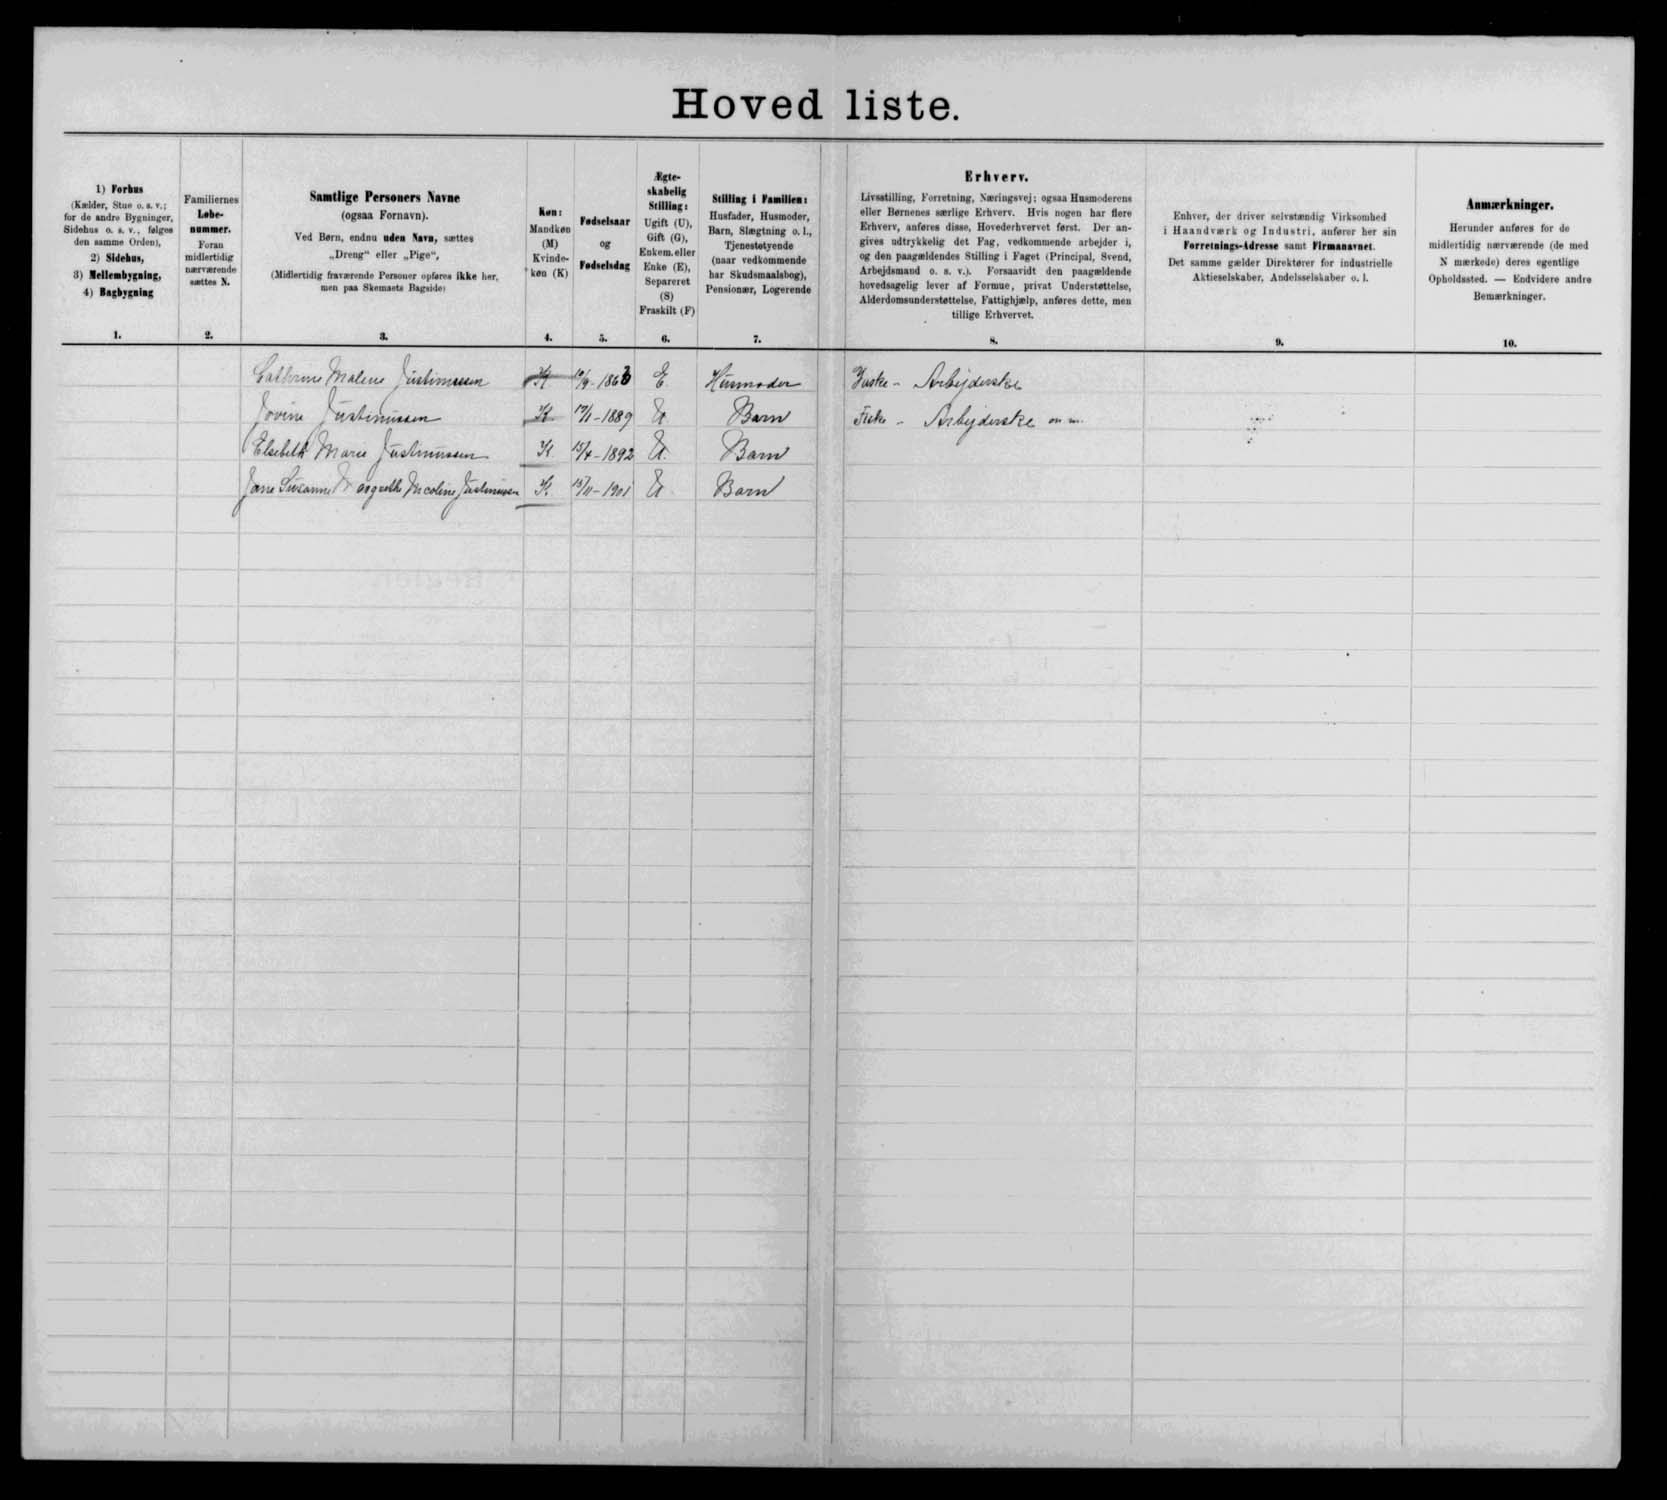 Hovedliste.
1) Forhus
(Kælder, Stue o. s. v.;
for de andre Bygninger,
Sidehus o. s. v., følges
den samme Orden),
2) Sidehus,
3) Mellembygning,
4) Bagbygning
1.
Familiernes
Løbe-
nummer.
Foran
midlertidig
nærværende
sættes N.
2.
Samtlige Personers Navne
(ogsaa Fornavn).
Ved Børn, endnu uden Navn, sættes
„Dreng“ eller „Pige“,
(Midlertidig fraværende Personer opføres ikke her,
men paa Skemaets Bagside)
3.
Køn:
Mandkøn
(M)
Kvinde-
køn (K)
4.
Fødselsaar
og
Fødselsdag
5.
Ægte-
skabelig
Stilling:
Ugift (U),
Gift (G),
Enkem. eller
Enke (E),
Separeret
(S)
Fraskilt (F)
6.
Stilling i Familien:
Husfader, Husmoder,
Barn, Slægtning o. l.,
Tjenestetyende
(naar vedkommende
har Skudsmaalsbog),
Pensionær, Logerende
7.
Erhverv.
Livsstilling, Forretning, Næringsvej; ogsaa Husmoderens
eller Børnenes særlige Erhverv. Hvis nogen har flere
Erhverv, anføres disse, Hovederhvervet først. Der an-
gives udtrykkelig det Fag, vedkommende arbejder i,
og den paagældendes Stilling i Faget (Principal, Svend,
Arbejdsmand o. s. v.). Forsaavidt den paagældende
hovedsagelig lever af Formue, privat Understøttelse,
Alderdomsunderstøttelse, Fattighjælp, anføres dette, men
tillige Erhvervet.
8.
Enhver, der driver selvstændig Virksomhed
i Haandværk og Industri, anfører her sin
Forretnings-Adresse samt Firmanavnet.
Det samme gælder Direktører for industrielle
Aktieselskaber, Andelsselskaber o. l.
9.
Anmærkninger.
Herunder anføres for de
midlertidig nærværende (de med
N mærkede) deres egentlige
Opholdssted. — Endvidere andre
Bemærkninger.
10.
Cathrine Malene Justinussen K 1863 E. Husmoder - Arbejderske
Jovine Justinussen K 1889 U. Barn Fiske - Arbejderske
Elsebeth Marie Justinussen K. 15/4-1892 U. Barn
Susanne Margrethe Nicoline Justinussen K. 15/11-1901 U. Barn